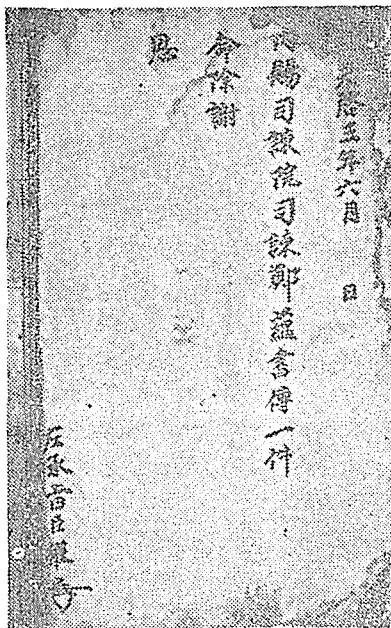 年六月 日
賜司諫院司諫鄭蘊書傳一件
命除謝
恩
左承旨臣